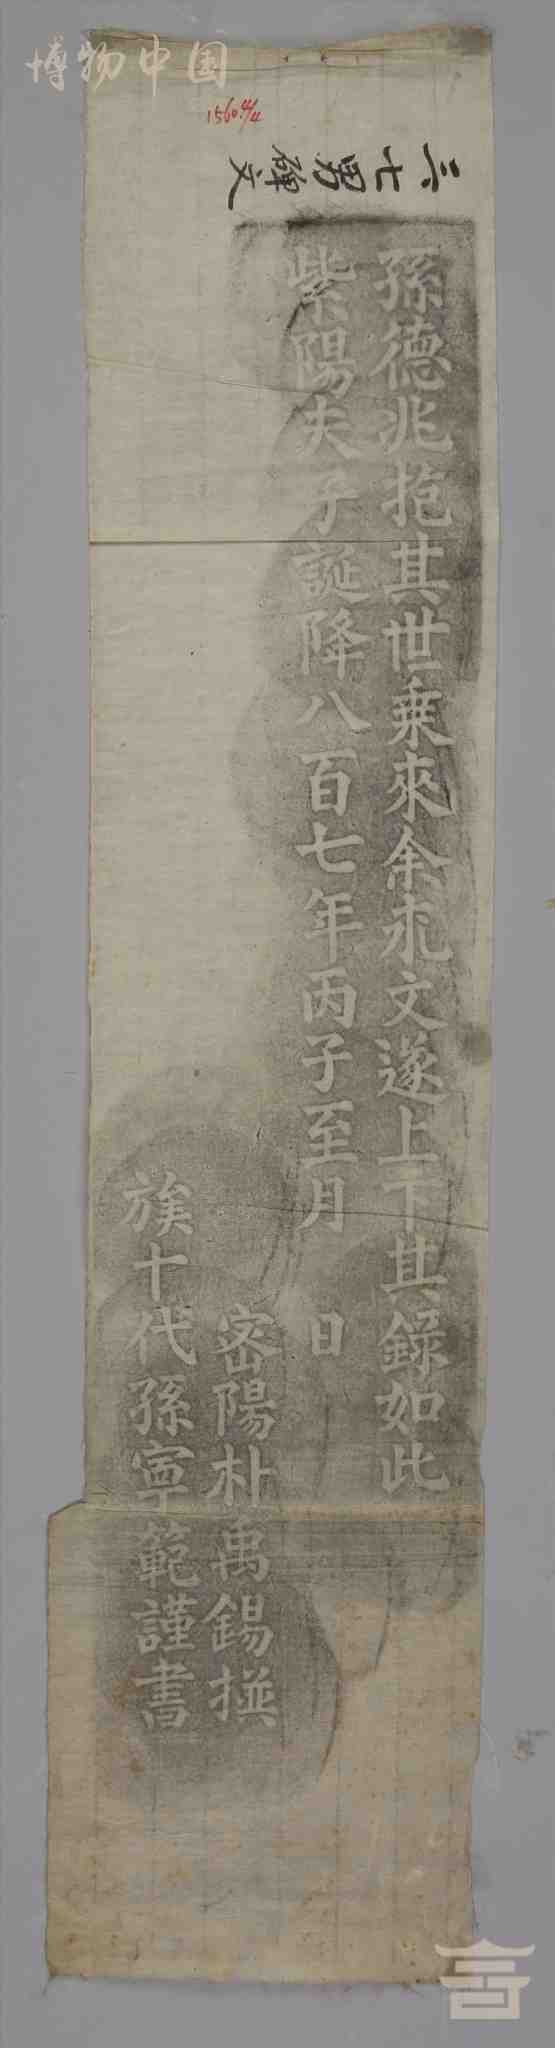 博物中国
1560:4/4
六七男碑文
孫德兆抱其世乗來余求文遂上下其錄如此
紫陽夫子誕降八百七年丙子至月 日
密陽朴禹錫撰
族十代孫寧範謹書